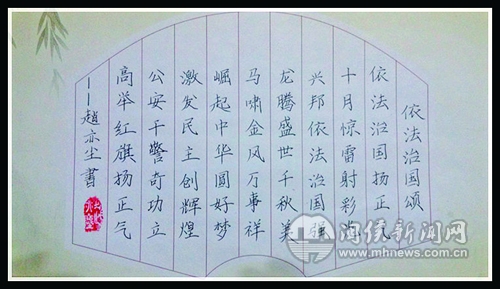 依法治国颂
依法治国扬正气
十月惊雷射彩
兴邦依法治国强
龙腾盛世千秋美
马啸金风万事祥
崛起中华圆好梦
激发民主创辉煌
公安干警奇功立
高举红旗扬正气
——趙亦尘書
闽侯新闻网
www.mhnews.com.cn